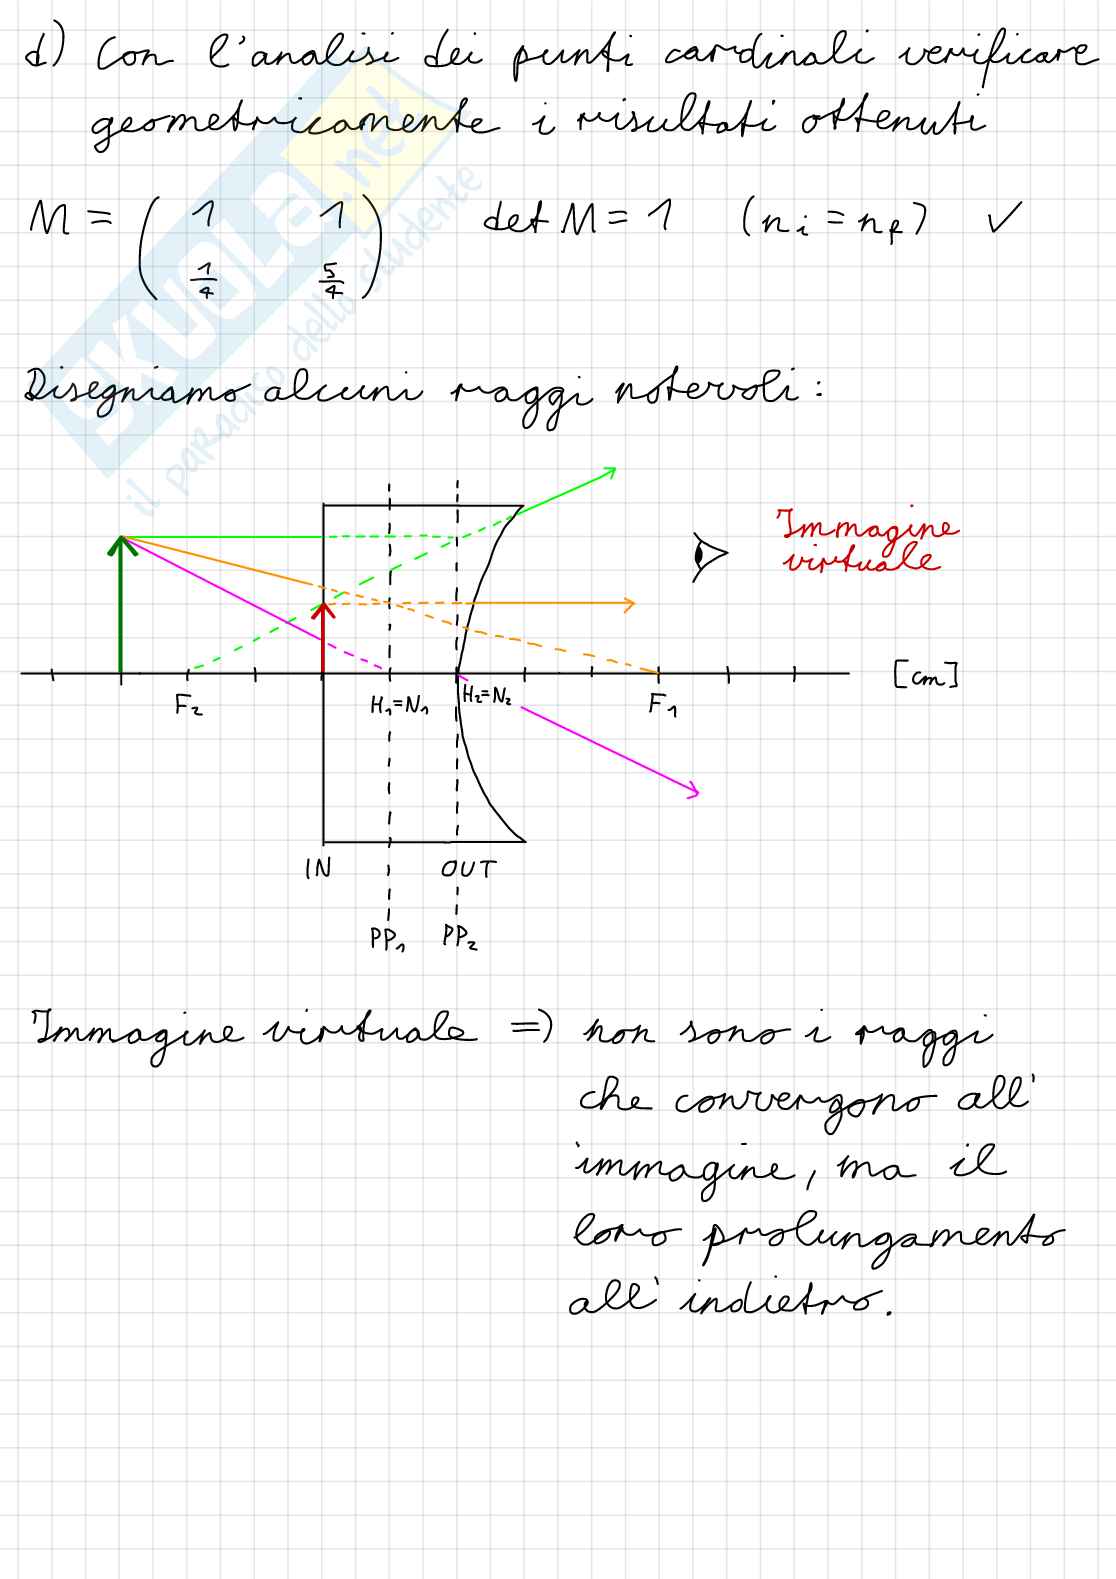 d) Con l'analisi dei punti cardinali verificare
geometricamente i risultati ottenuti
M = ( 1 1 ) det M = 1 (ni = nf) ✓
1/4 5/4
Disegniamo alcuni raggi notevoli:
Immagine
virtuale
[cm]
F2 H1=N1 H2=N2 F1
IN OUT
PP1 PP2
Immagine virtuale => non sono i raggi
che convergono all'
immagine, ma il
loro prolungamento
all'indietro.
SKUOLA.net
il paradiso dello studente